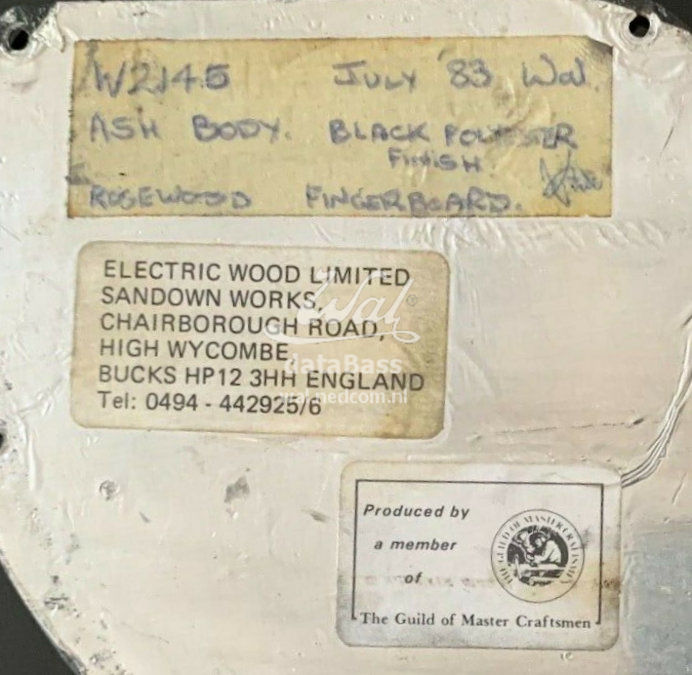 W2145 JULY '83 Wal.
ASH BODY. BLACK POLYESTER
FINISH.
ROSEWOOD FINGERBOARD.
ELECTRIC WOOD LIMITED
SANDOWN WORKS,
CHAIRBOROUGH ROAD,
HIGH WYCOMBE,
BUCKS HP12 3HH ENGLAND
Tel: 0494 - 442925/6
Wal ®
dataBass
wal.hedcom.nl
Produced by
a member
of
The Guild of Master Craftsmen
THE GUILD OF MASTER CRAFTSMEN